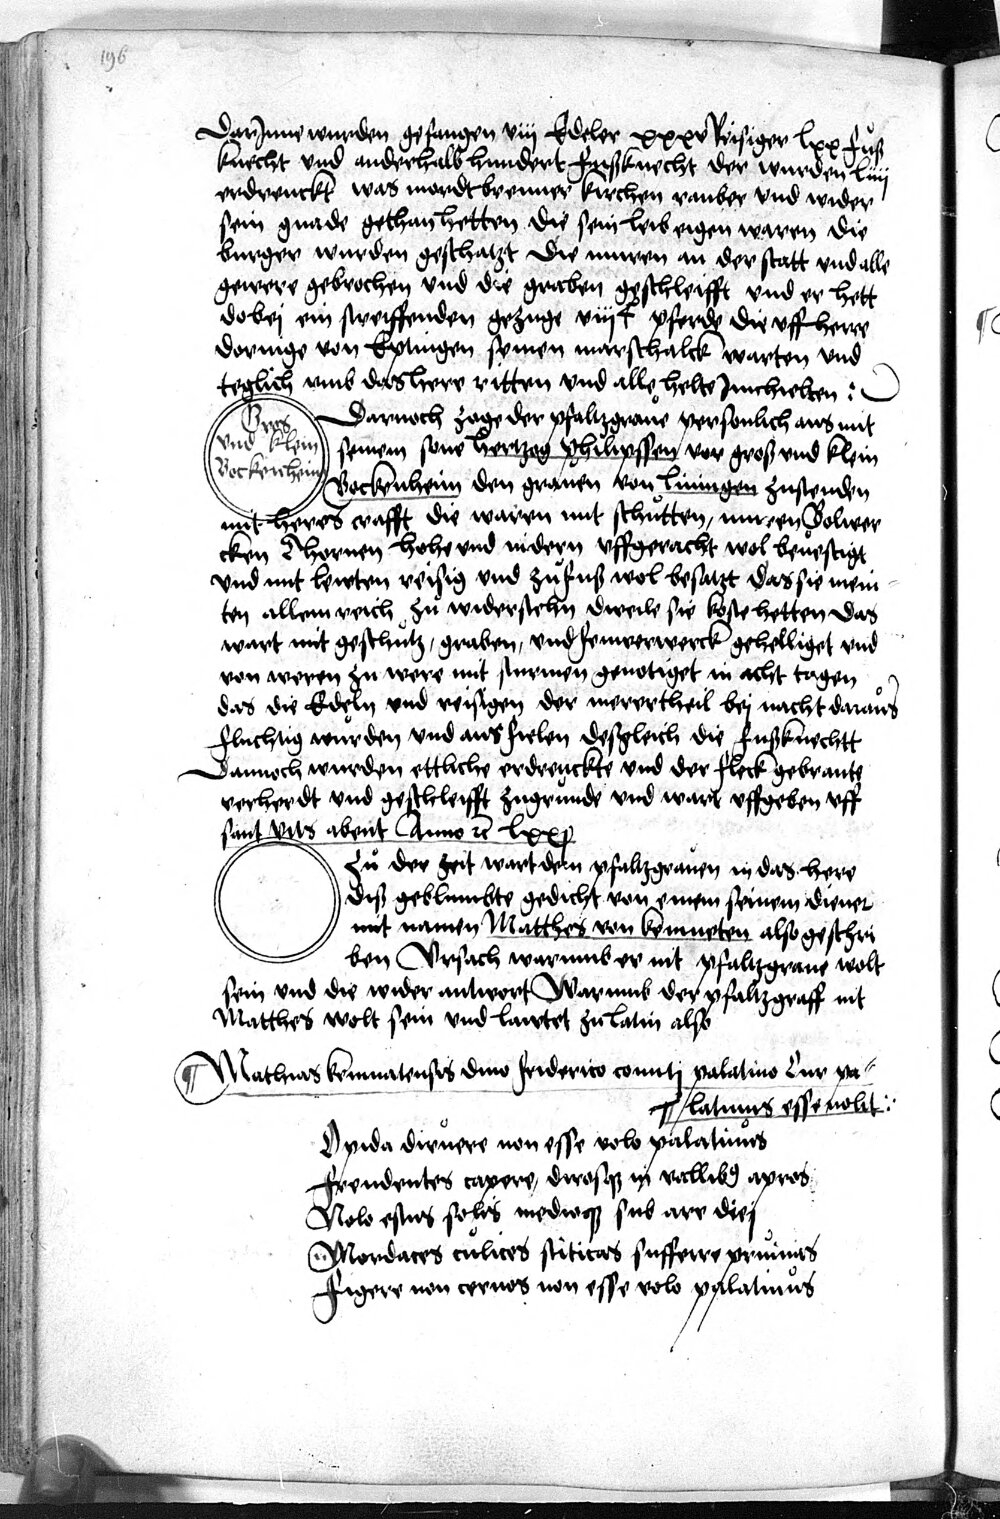 196
Darjnne wurden gefangen viij Edeler xxxv Reisiger lxx fuß
knecht vnd anderhalb hundert fußknecht der wurden liiij
erdrenckt was mordtbrenner kirchen rauber vnd wider
sein gnade gethan hetten die sein leib eigen waren die
burger wurden geschatzt die muren an der statt vnd alle
gewere gebrochen vnd die graben geschleifft vnd er hett
dobej ein streiffenden gezuge viijc pferde die vff herre
dornige von Eptingen seinen marschalck warten vnd
teglich vmb das here ritten vnd alle helte Jnnhielten :
Gros
vnd klein
Bockenheim
Darnoch zoge der pfaltzgraue personlich aus mit
seinem sone hertzog philipssen vor groß vnd klein
Bockenheim den grauen von liningen zustenden
mit heres crafft die waren mit schutten, muren Bolwer
cken Thornen hohe vnd nidern vffgeracht wol beuestigt
vnd mit lewten reisig vnd zu fuß wol besatzt das sie mein-
ten allem reich zu widerstehn dweile sie koste hetten das
wart mit geschutz, graben, vnd fewerwerck gehelliget vnd
von weren zu were mit sturmen genotiget in acht tagen
das die Edeln vnd reisigen der merertheil bej nacht daraus
fluchtig wurden vnd aus fielen desgleich die fußknechtt
Dannoch wurden ettliche erdrenckte vnd der fleck gebrante
verherdt vnd geschleifft zugrunde vnd wart vffgeben vff
sant vits abent Anno rc lxxj
Zu der zeit wart dem pfaltzgrauen in das here
diß geblumbte gedicht von einem seinem diener
mit namen Matthes von kemneten also geschri
ben Vrsach warumb er nit pfaltzgraue wolt
sein vnd die wider antwort Warumb der pfaltzgraff nit
Matthes wolt sein vnd lawtet zu latin also
¶ Mathias kemnatensis dmo friderico comitj palatino Cur pa-
latinus esse nolit :
Opida diruere non esse volo palatinus
Frendentes capere, dirosque in vallibus apros
Nolo estus solis medioque sub axe diej
Mordaces culices stiticas sufferre pruinas
Figere non ceruos non esse volo palatinus